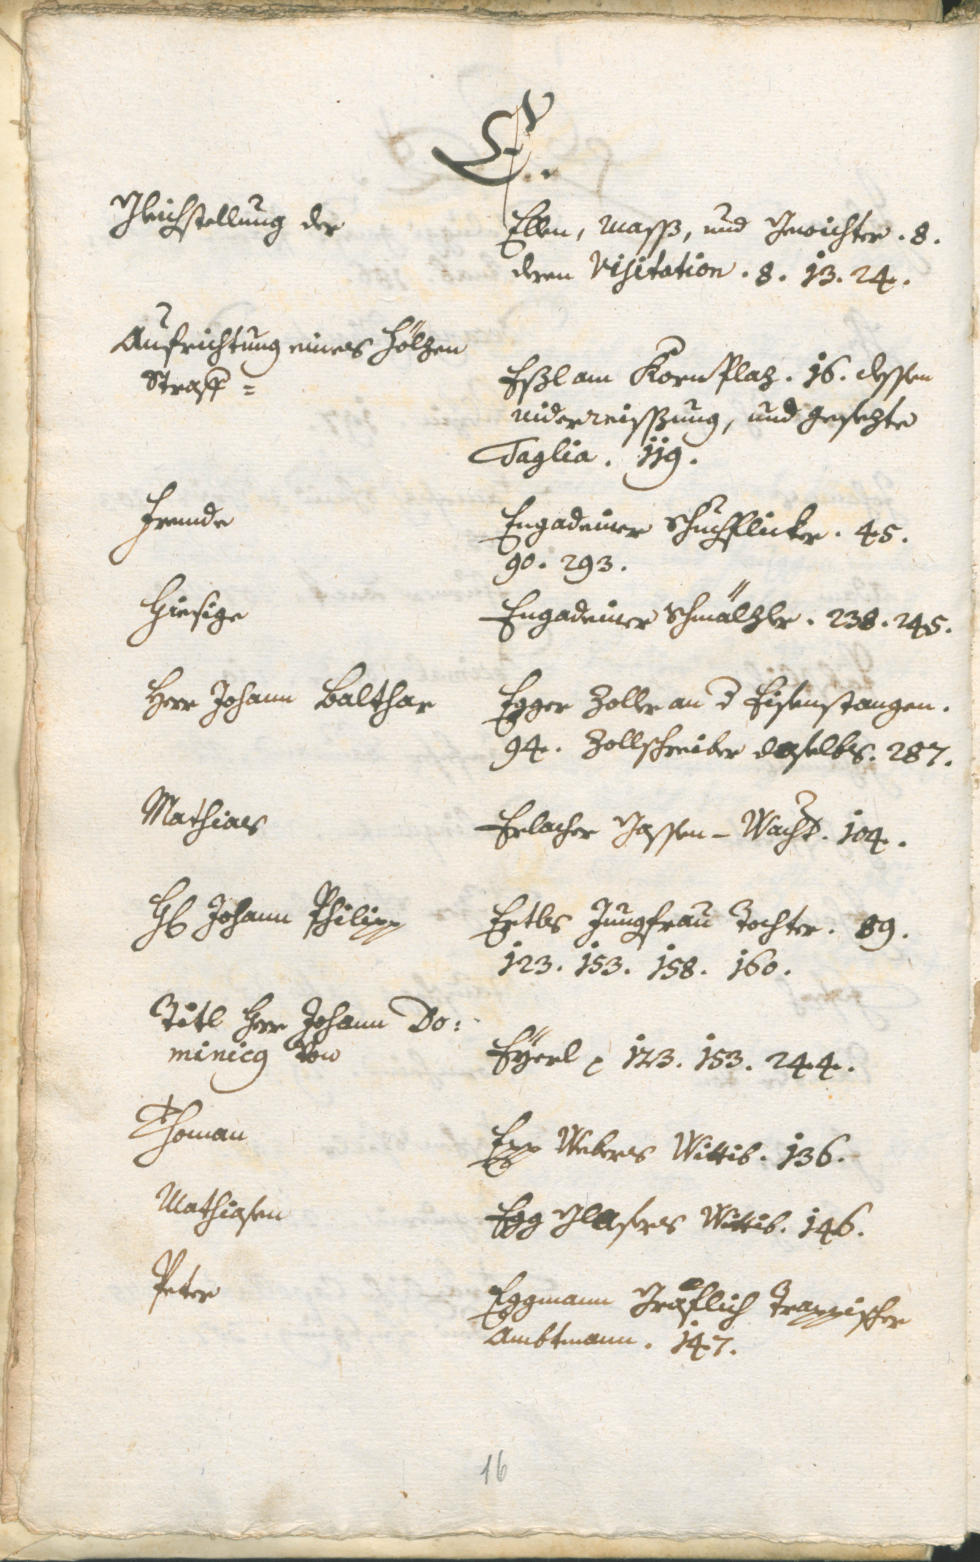 E.
Gleichstellung der
Ellen, Mass, und Gewichter. 8.
deren Visitation. 8. 13. 24.
Aufrichtung eines hölzen
Straff=
Essl am Kornplaz. 16. dessen
niderreissung, und gesezte
Taglia. 119.
Fremde
Engadeiner Schuchflicker. 45.
90. 293.
Hiesige
Engadeiner Schmälzler. 238. 245.
Herr Johann Balthar
Egger Zoller an d Eisenstangen.
94. Zollschreiber daselbs. 287.
Mathias
Erlacher Gassen-Wacht. 104.
H Johann Philipp
Ertls Jungfrau Tochter. 89.
123. 153. 158. 160.
Titl Herr Johann Do:
minicg von
Eÿerl p 123. 153. 244.
Thoman
Epp Webers Wittib. 136.
Mathiasen
Egg Glasers Wittib. 146.
Peter
Eggmann Gräflich Trappischer
Ambtmann. 147.
16